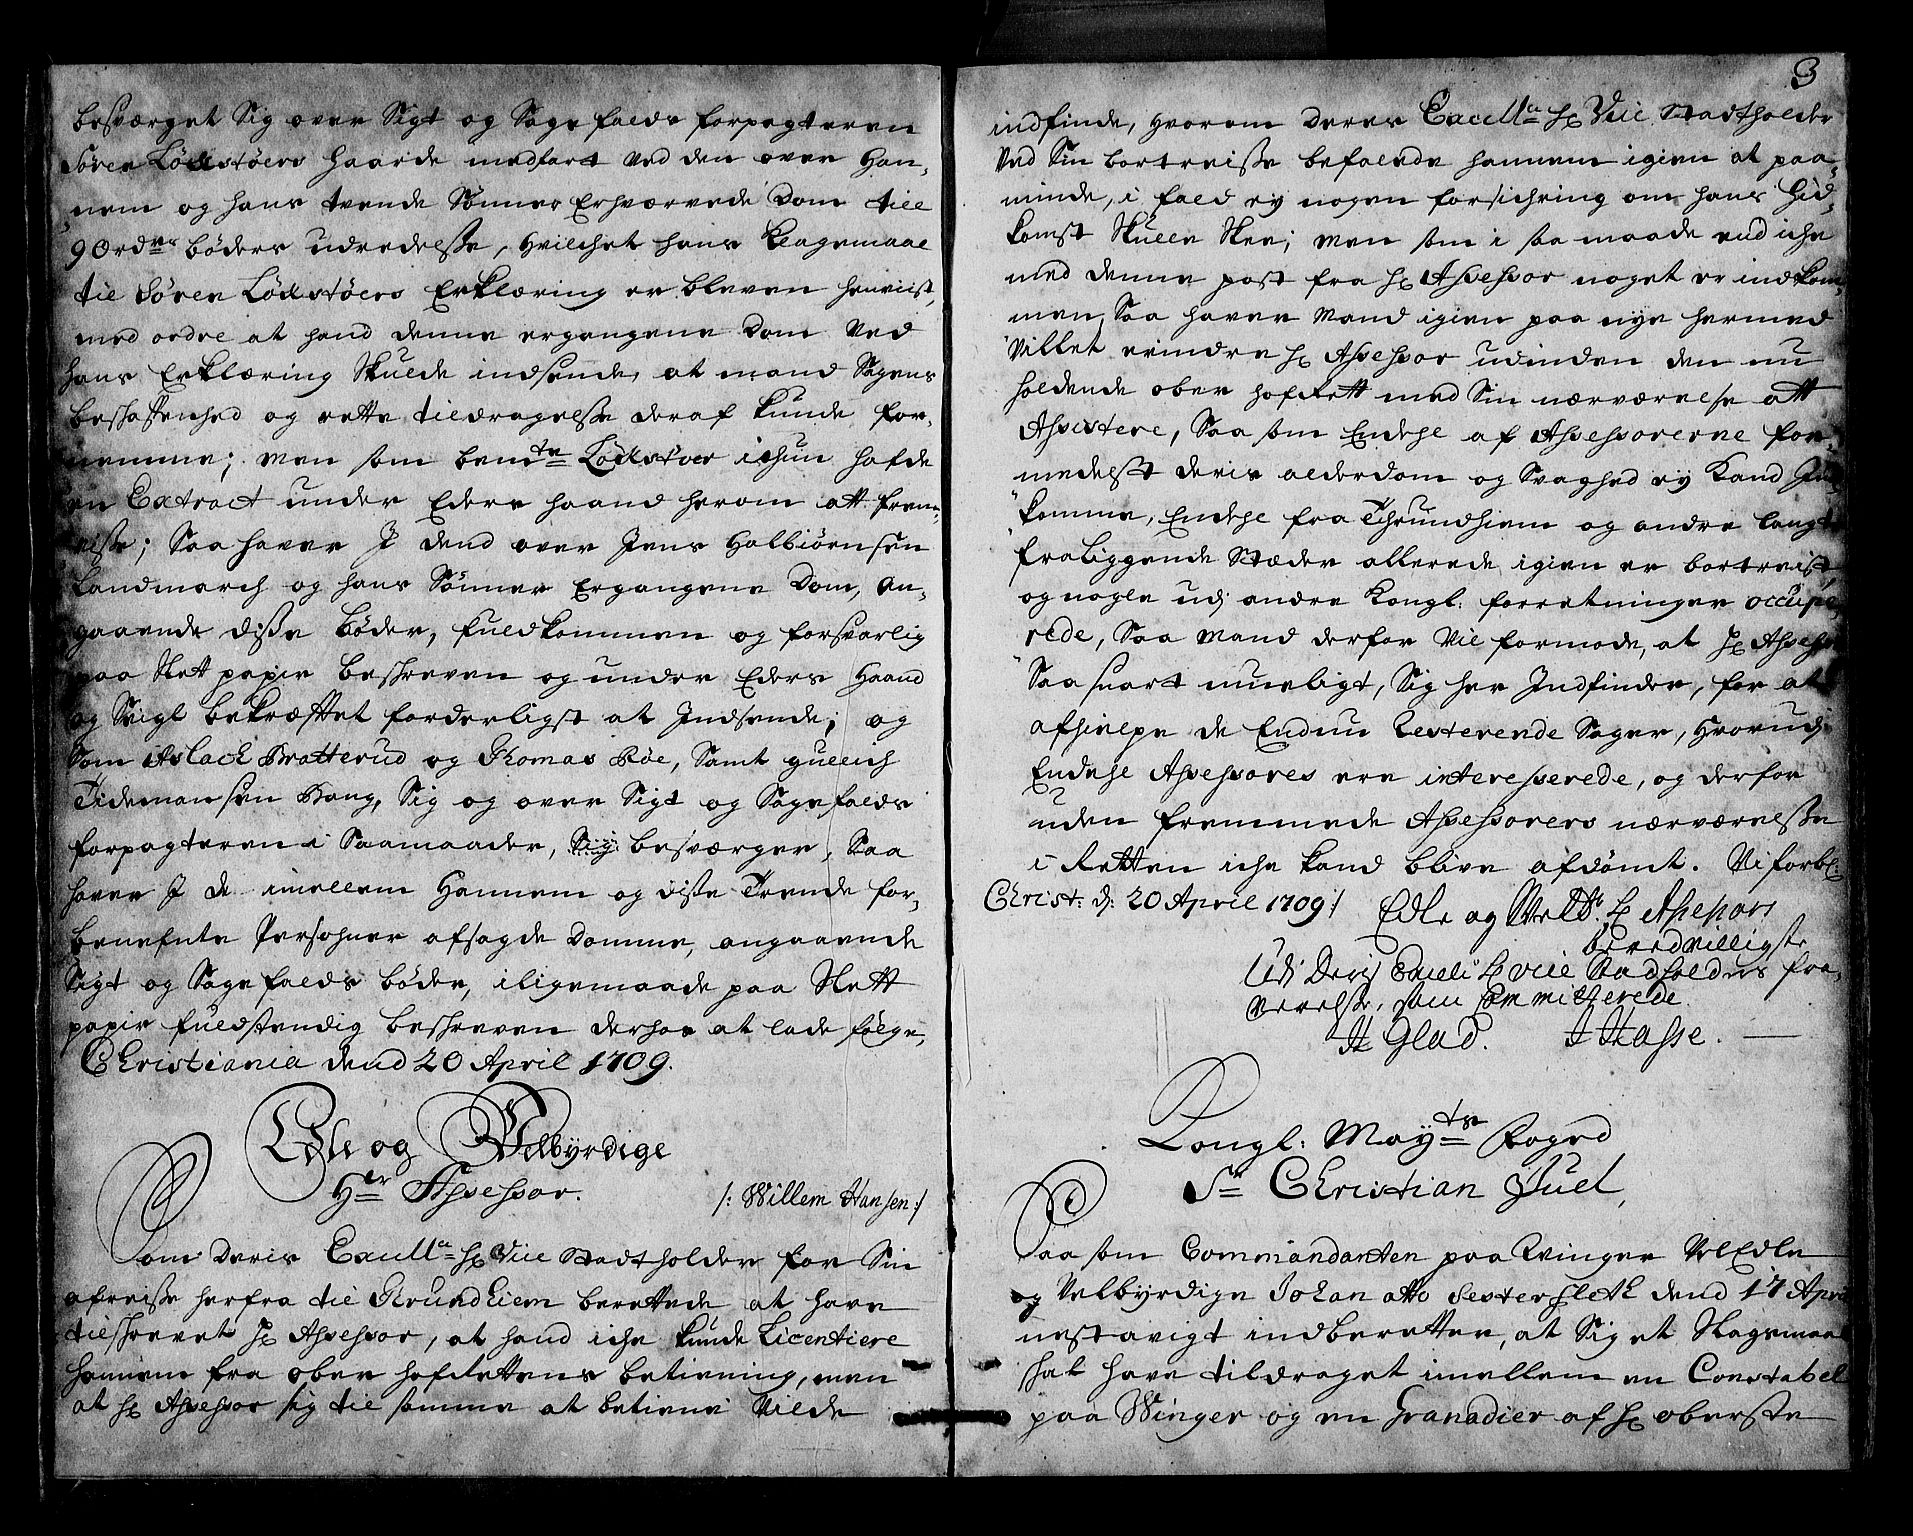 besværget Sig over Sigt og Sagefalds forpagteren
Sören Lödstöers haarde medfart ved den over Han-
nem og hans tvende Sønner Erhværvede Dom till
90 rdrs bøders udredelsse, hvilchet hans klagemaal
til Sören Lödstöers Erklæring er bleven henviist,
med ordre at hand denne ergangene Dom ved
hans Erklæring skulde indsende, at mand Sagens
beskaffenhed og rette tildragelsse deraf kunde for-
nemme; men som bemte Lödstöer ichun hafde
en Extract under Eders haand herom att frem-
visse; Saa haver I dend over Jens Halbiörnsen
Landmarch og hans Sønner Ergangene Dom, an-
gaaende disse bøder, fuldkommen og forsvarlig
paa slett papir beskreven og under Eders Haand
og Seigl bekræfftet forderligst at Indsende; og
som Aslach Bratterud og Thomas Böe, samt gullich
Tidemansen Hang, Sig og over Sigt og Sagefalds
forpagteren i Saamaader, Sig besværger, Saa
haver I de imellem Hannem og disse Trende for-
benefnte Persohner afsagde Domme, angaaende
Sigt og Sagefalds bøder, iligemaade paa slett
papir fuldstendig beskreven derhos at lade følge,
Christiania dend 20 April 1709.
Edle og Velbyrdige
Her Assessor.
/: Willem Hansen :/
Som Deris Excellce Hr Vice Stadtholder for Sin
afreisse herfra til Trundhiem berettede at have
tilskrevet Hr Assessor, at hand iche kunde Licentiere
hannem fra ober hofrettens betiening, men
at Hr Assessor sig til samme at betiene vilde
3
indfinde, hvorom Deres Excellce Hr Vice Stadtholder
ved Sin bortreisse befalede hannem igien at paa-
minde, i fald ey nogen forsichring om hans Hid-
komst skulle skee; men som i saa maade end iche
med denne post fra Hr Assessor noget er indkom-
men, Saa haver mand igien paa nye hermed
villet erindre Hr Assessor udinden den nu
holdende ober hofrett med Sin nærværelse att
Assistere, Saa som Endehl af Assessorerne for-
medelst deris alderdom og Svaghed ey kand Ind-
komme, Endehl fra Thrundhiem og andre langt
fraliggende Stæder allerede igien er bortreist,
og nogle udj andre Kongl: forretninger occupe-
rede, Saa mand derfor vil formode, at Hr Assessor
Saa snart mueligt, Sig her Indfinder, for at
afhielpe de Endnu Resterende Sager, hvorudj
Endehl Assessores ere interesserede, og derfor
uden fremmede Assessorers nærværelsse
i Retten iche kand blive afdømt. Vi forbl:
Christ: d: 20 April 1709 :/ Edle og Velb: Hr Assessors
beredvilligste
Udj Deris Excell: Hr Vice Stadholders fra-
værelse, som Committerede.
H Glad. J Hasse.
Kongl: Mayts Foged
Sr Christian Juel,
Saa som Commandanten paa Winger VelEdle
og Velbyrdige Johan otto Sestersfleth dend 17 April
nestavigt indberetter, at Sig et slagsmaal
skal have tildraget imellem en Constabel
paa Winger og en Granadier af Hr oberste